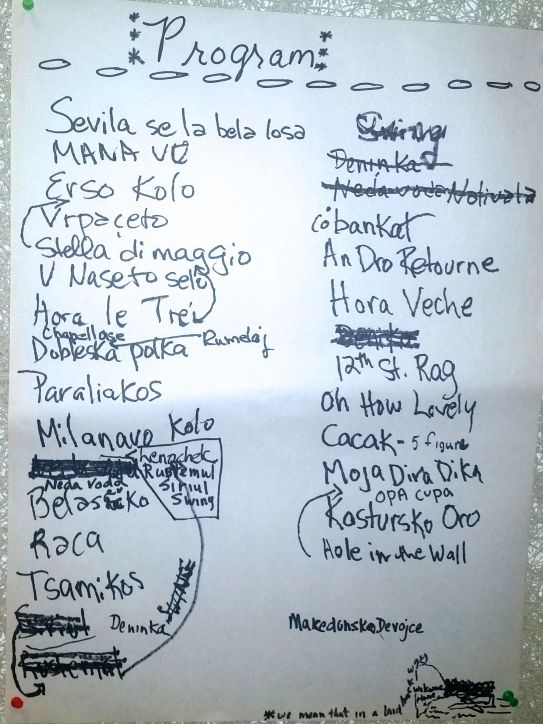 Program
Sevila se la bela losa
MANA VU
Erso Kolo
Vrpaceto
Stella di maggio
V Naseto selo
Hora le Trei
Chapellose
Dobleska polka Rumelaj
Paraliakos
Milanavo Kolo
Neda voda
Belasicko
Raca
Tsamikos
Deninka
Shenachek
Rustemul
Siriul
Swing
Swing
Deninka
Neda voda Nolivala
cobankat
An Dro Retourne
Hora Veche
Deninka
12th St. Rag
Oh How Lovely
Cacak - 5 figure
Moja Diva Dika
OPA CUPA
Kostursko Oro
Hole in the Wall
Makedonsko Devojce
*we mean that in a laid